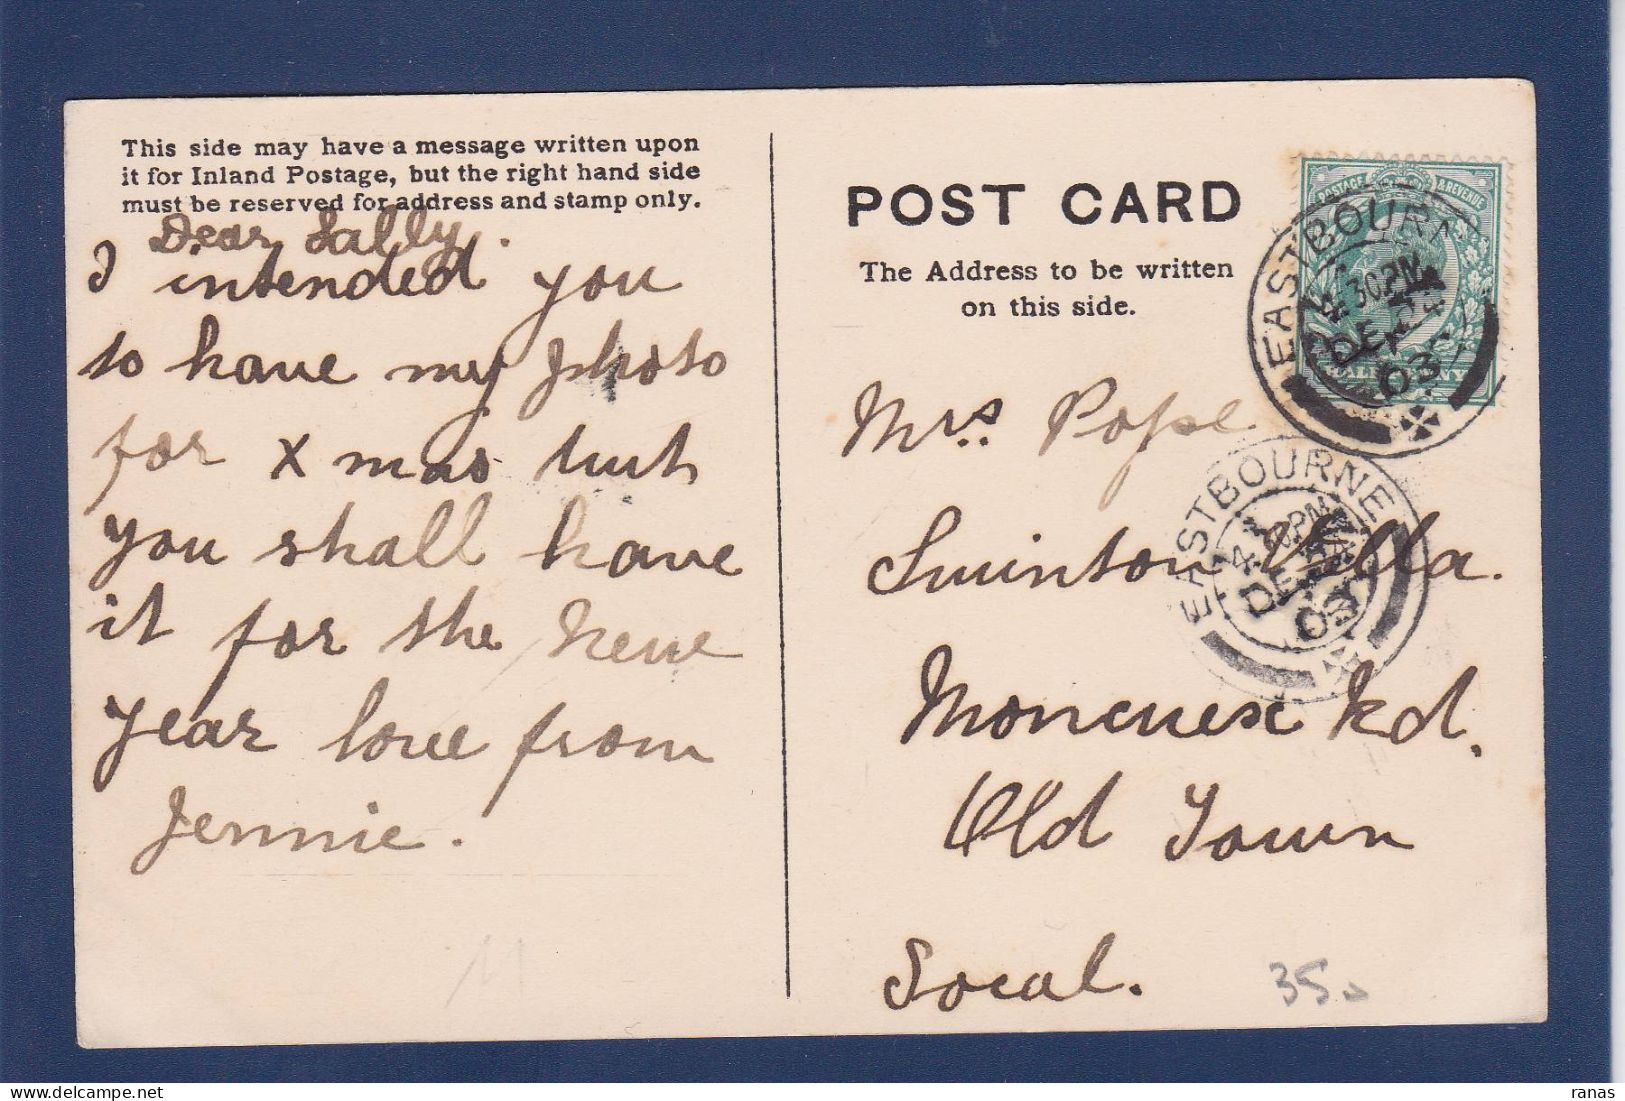 This side may have a message written upon
it for Inland Postage, but the right hand side
must be reserved for address and stamp only.
Dear Sally.
I intended you
to have my photo
for X mas but
you shall have
it for the New
Year love from
Jennie.
POST CARD
The Address to be written
on this side.
Mrs. Pope
Swinton Villa.
Moncuex Rd.
Old Town
Local.
35
POSTAGE & REVENUE
EASTBOURN
4 30 PM
DE 24
03
EASTBOURNE
4 30 PM
DE
03
ranas